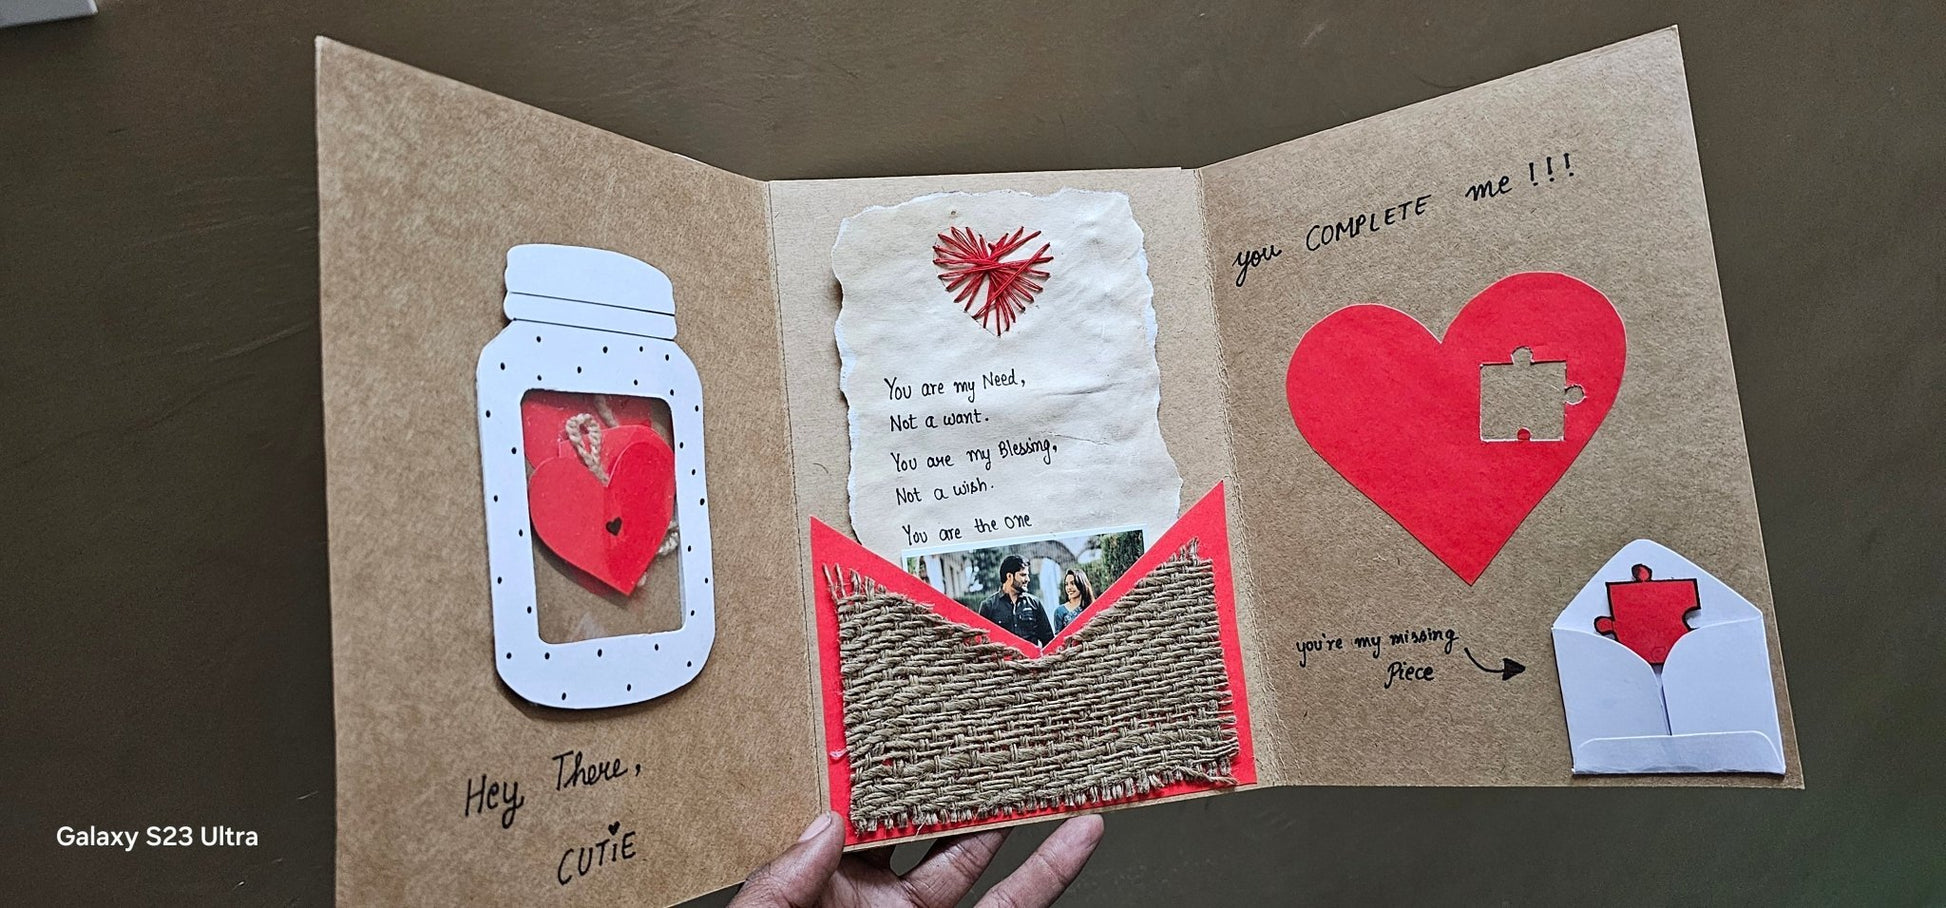 Hey There,
CUTiE
You are my Need,
Not a want.
You are my Blessing,
Not a wish.
You are the one
you COMPLETE me !!!
you're my missing
Piece
Galaxy S23 Ultra